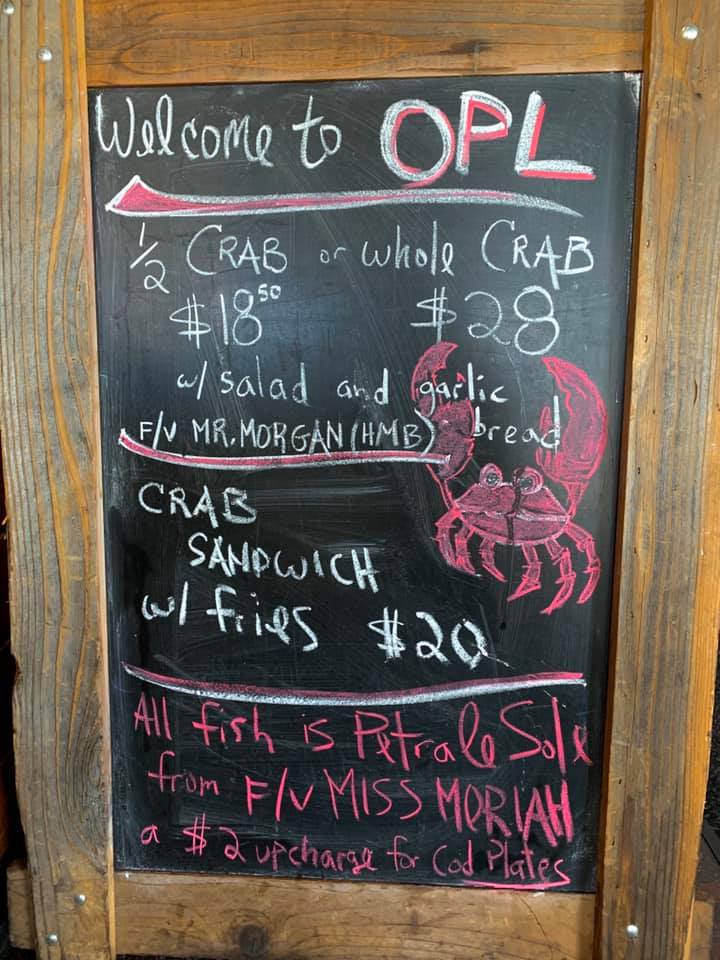 Welcome to OPL
1/2 CRAB or whole CRAB
$18.50 $28
w/ salad and garlic
F/V MR. MORGAN (HMB) bread
CRAB
SANDWICH
w/ fries $20
All fish is Petrale Sole
from F/V MISS MORIAH
a $2 upcharge for Cod Plates